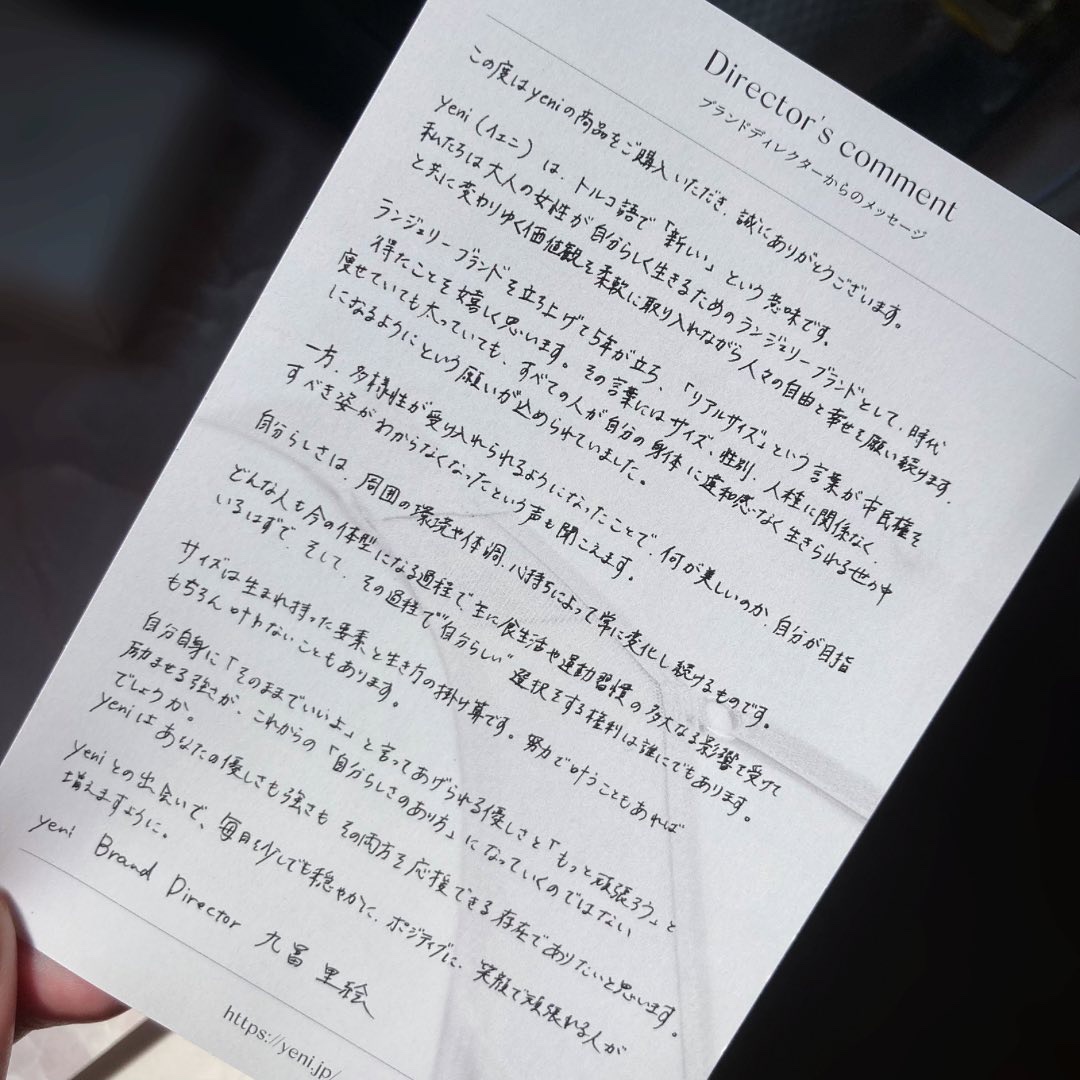 Director's comment
ブランドディレクターからのメッセージ
この度はyeniの商品をご購入いただき、誠にありがとうございます。
yeni（イェニ）は、トルコ語で「新しい」という意味です。
私たちは大人の女性が自分らしく生きるためのランジェリーブランドとして、時代
と共に変わりゆく価値観を柔軟に取り入れながら人々の自由と幸せを願い続けます。
ランジェリーブランドを立ち上げて5年が立ち、「リアルサイズ」という言葉が市民権を
得たことを嬉しく思います。その言葉にはサイズ、性別、人種に関係なく、
痩せていても太っていても、すべての人が自分の身体に違和感なく生きられる世の中
になるようにという願いが込められていました。
一方、多様性が受け入れられるようになったことで、何が美しいのか、自分が目指
すべき姿がわからなくなったという声も聞こえます。
自分らしさは、周囲の環境や体調、心持ちによって常に変化し続けるものです。
どんな人も今の体型になる過程で主に食生活や運動習慣の多大なる影響で受けて
いるはずで、そして、その過程で"自分らしい"選択をする権利は誰にでもあります。
サイズは生まれ持った要素と生き方の掛け算です。努力で叶うこともあれば
もちろん叶わないこともあります。
自分自身に「そのままでいいよ」と言ってあげられる優しさと「もっと頑張ろう」と
励ませる強さが、これからの「自分らしさのあり方」になっていくのではない
でしょうか。
yeniはあなたの優しさも強さもその両方を応援できる存在でありたいと思います。
yeniとの出会いで、毎日を少しでも穏やかに、ポジティブに、笑顔で頑張れる人が
増えますように。
yeni Brand Director 九冨里絵
https://yeni.jp/